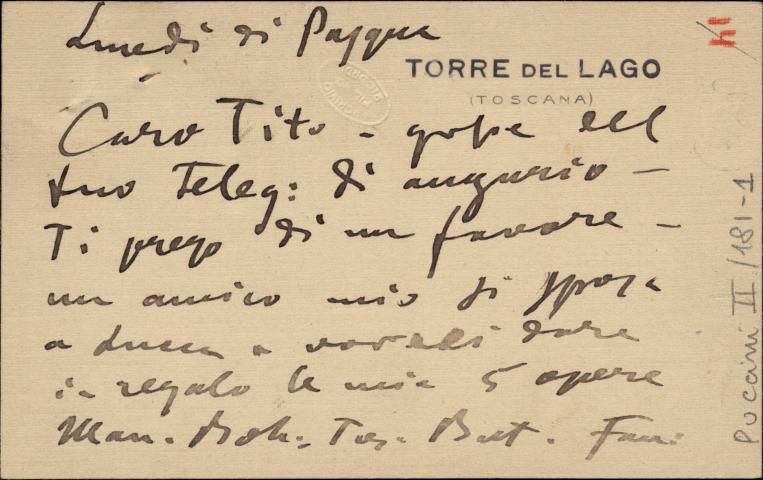 Lunedì di Pasqua
TORRE DEL LAGO
(TOSCANA)
Caro Tito – grazie del
tuo Teleg: di augurio –
Ti prego di un favore –
un amico mio si sposa
a Lucca e vorrei dare
in regalo le mie 5 opere
Man. Boh. Tos. Butt. Fan:
Puccini II/181-1